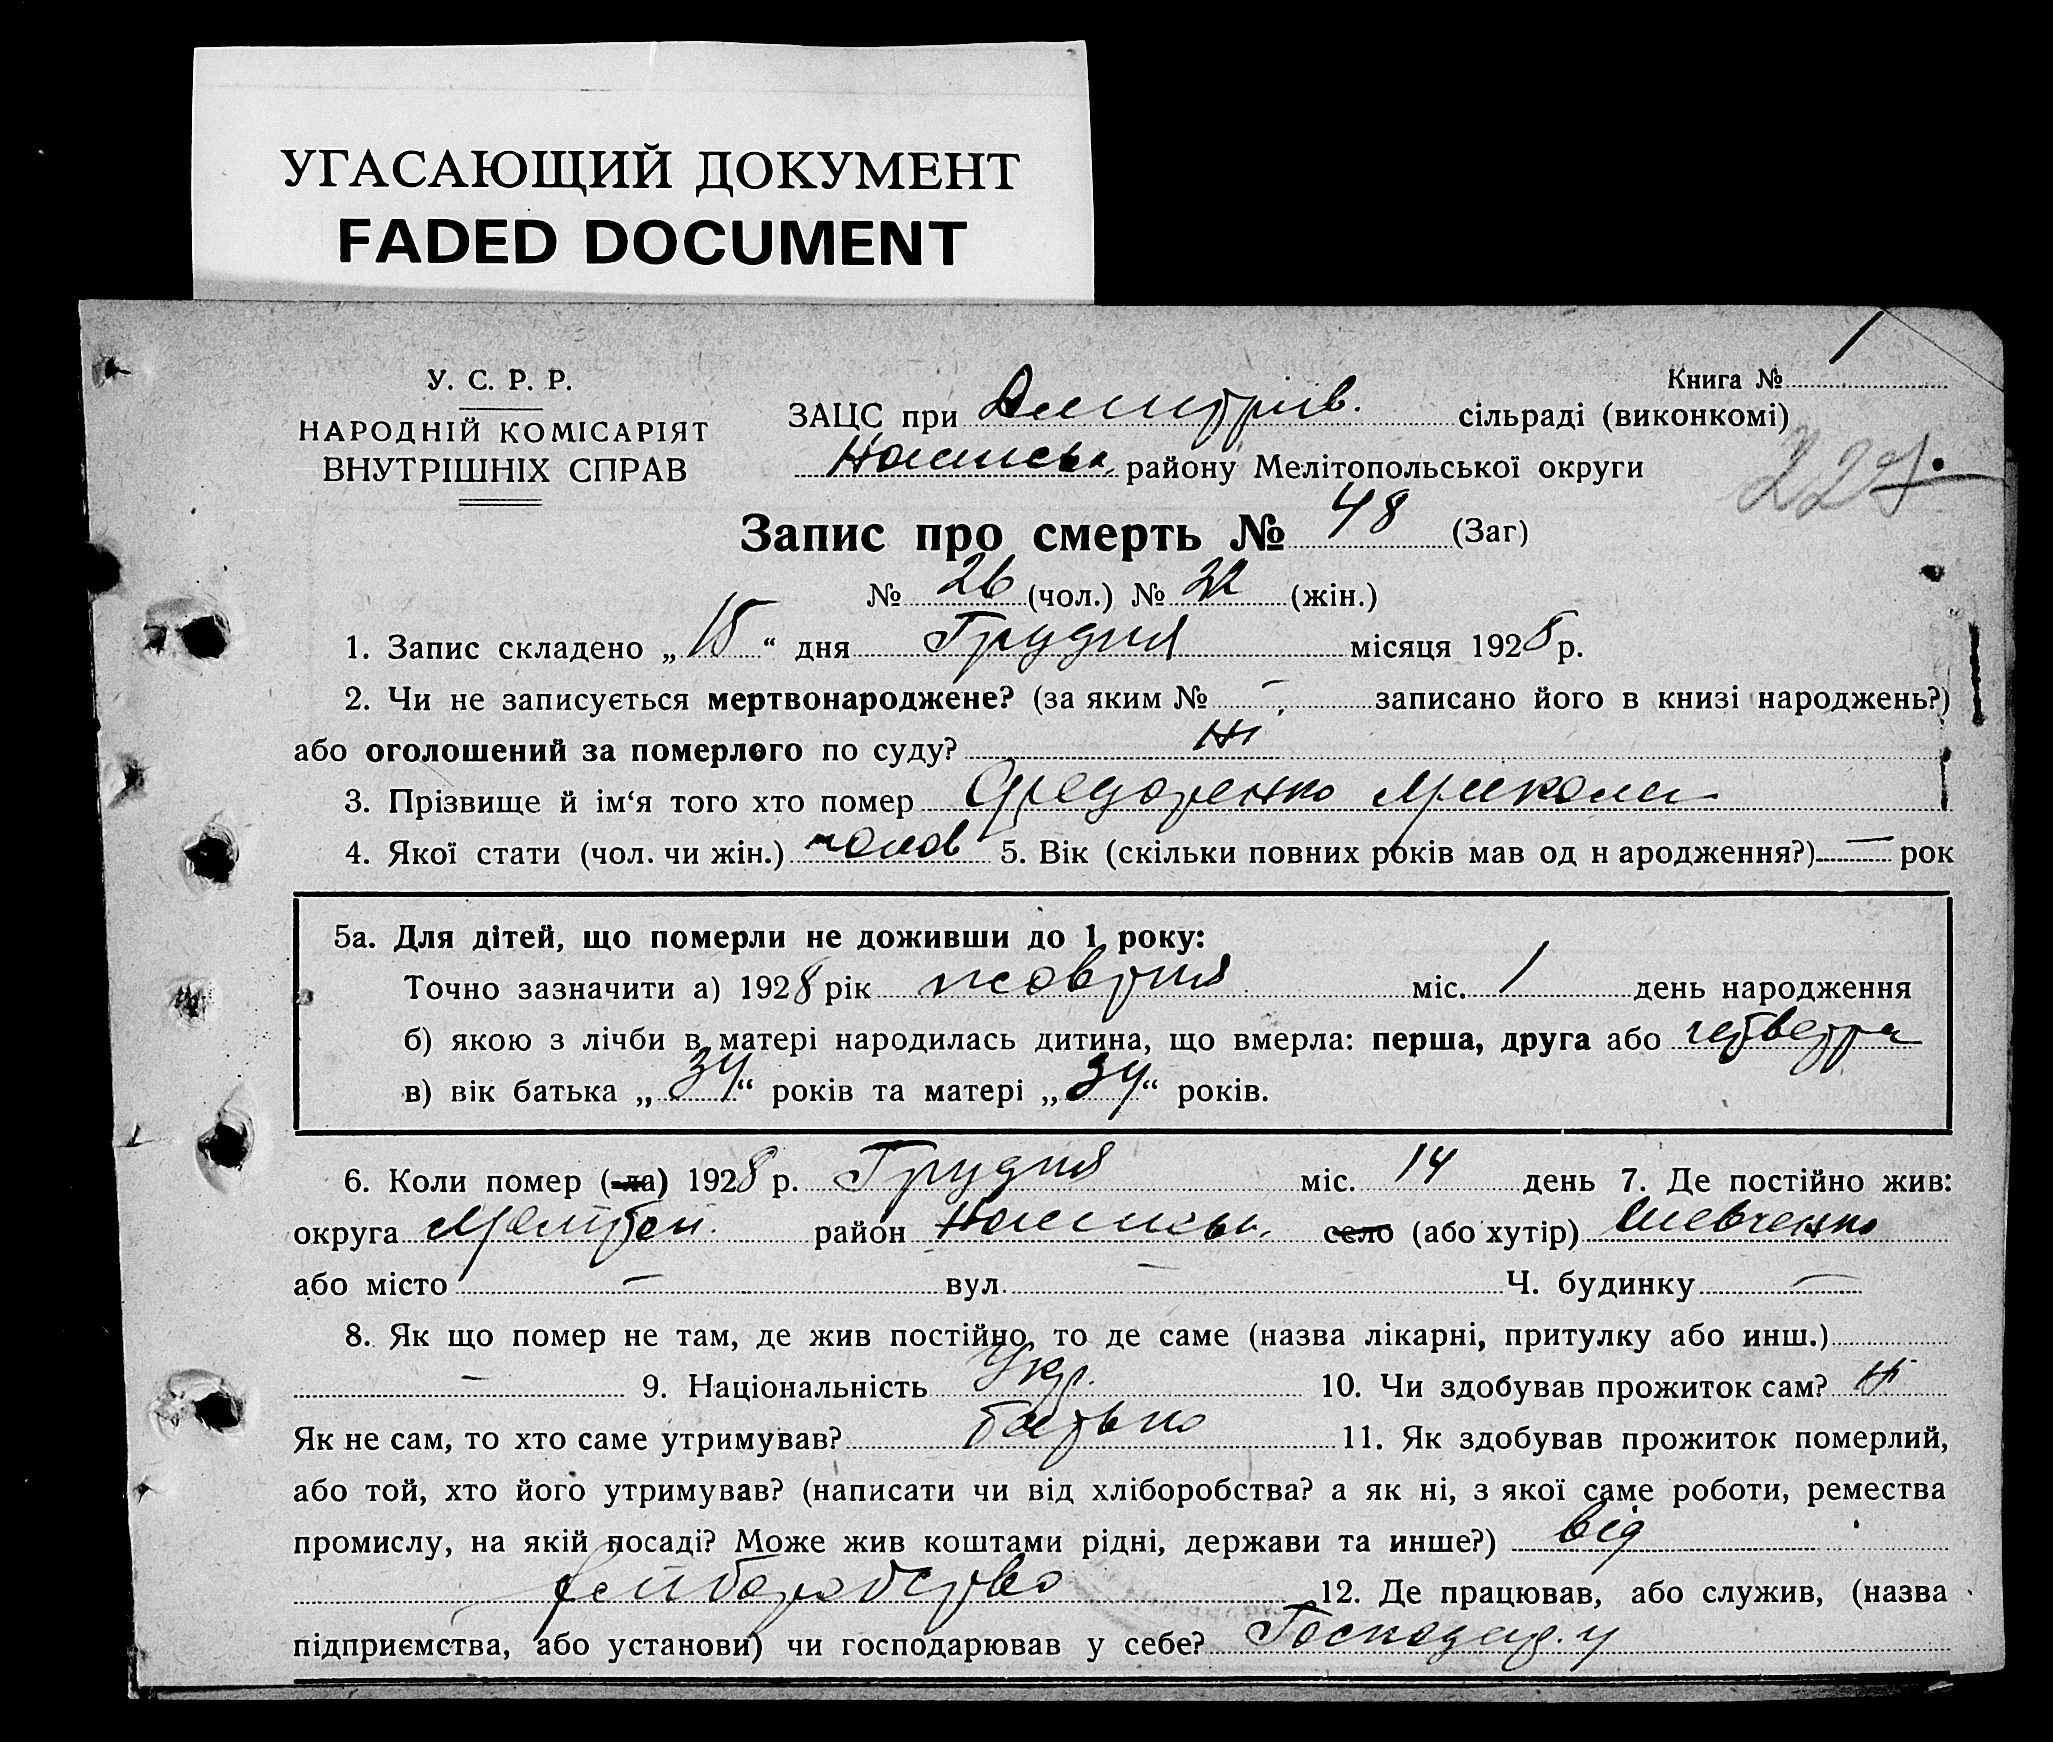 УГАСАЮЩИЙ ДОКУМЕНТ
FADED DOCUMENT
У. С. Р. Р.
НАРОДНІЙ КОМІСАРІЯТ
ВНУТРІШНІХ СПРАВ
Книга № 1
ЗАЦС при Дмитрів. сільраді (виконкомі)
району Мелітопольської округи
227
Запис про смерть № 48 (Заг)
№ 26 (чол.) № 22 (жін.)
1. Запис складено „ 15 “ дня Грудня місяця 1928 р.
2. Чи не записується мертвонароджене? (за яким № — записано його в книзі народжень?)
або оголошений за померлого по суду? Ні
3. Прізвище й ім‘я того хто помер Федоренко Микола
4. Якої стати (чол. чи жін.) чолов 5. Вік (скільки повних років мав од н ародження?) — рок
5а. Для дітей, що померли не доживши до 1 року:
Точно зазначити а) 1928 рік жовтня міс. 1 день народження
б) якою з лічби в матері народилась дитина, що вмерла: перша, друга або четверта
в) вік батька „ 34 “ років та матері „ 34 “ років.
6. Коли помер (ла) 1928 р. Грудня міс. 14 день 7. Де постійно жив:
округа Меліт район село (або хутір) Шевченко
або місто — вул. — Ч. будинку —
8. Як що помер не там, де жив постійно, то де саме (назва лікарні, притулку або инш.)
— 9. Національність Укр. 10. Чи здобував прожиток сам? Ні
Як не сам, то хто саме утримував? батько 11. Як здобував прожиток померлий,
або той, хто його утримував? (написати чи від хліборобства? а як ні, з якої саме роботи, ремества
промислу, на якій посаді? Може жив коштами рідні, держави та инше?) від
хліборобство 12. Де працював, або служив, (назва
підприємства, або установи) чи господарював у себе? Господар. у